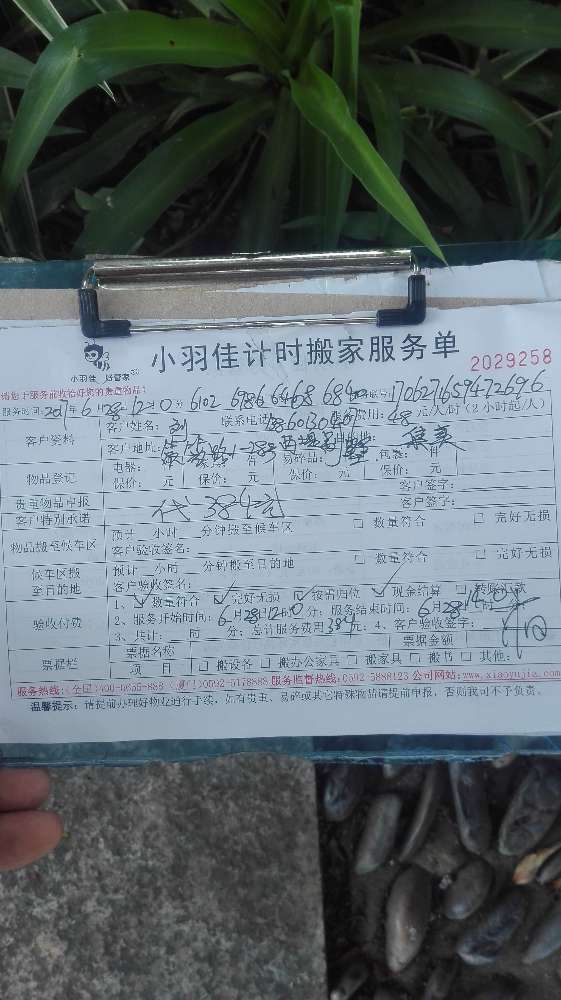 小羽佳计时搬家服务单
小羽佳 好管家
2029258
请您于服务前收拾好您的贵重物品:
服务时间:2017年6月28日12时10分 6102 6986 6468 684 1706271659472696
客户资料 客户姓名:刘 联系电话: 费用:48元/人/时(2小时起/人)
客户地址: 集美
物品登记 电器: 台 易碎品: 包装: 件
保价: 元 保价: 元 保价: 元 保价: 元
贵重物品申报 客户签字:
客户特别承诺 代384元 客户签字:
物品搬至候车区 预计 小时 分钟搬至候车区 □ 数量符合 □ 完好无损
客户验收签名:
候车区搬至目的地 预计 小时 分钟搬至目的地 □ 数量符合 □ 完好无损
客户验收签名:
验收付费 1、 数量符合 完好无损 按需归位 现金结算 □ 转账汇款
2、服务开始时间:6月28日12时10分;服务结束时间:6月28日14时
3、共计: 时 分;总计服务费用384元;4、客户验收签字:
票据栏 票据名称 票据金额
项 目 □ 搬设备 □ 搬办公家具 □ 搬家具 □ 搬书 □ 其他:
服务热线:(全国)400-6656-888 (厦门)0592-5178888 服务监督热线:0592-5888123 公司网站:www.xiaoyujia.com
温馨提示:请提前办理好物业通行手续,如有贵重、易碎或其它特殊物品请提前申报,否则我司可不予负责。